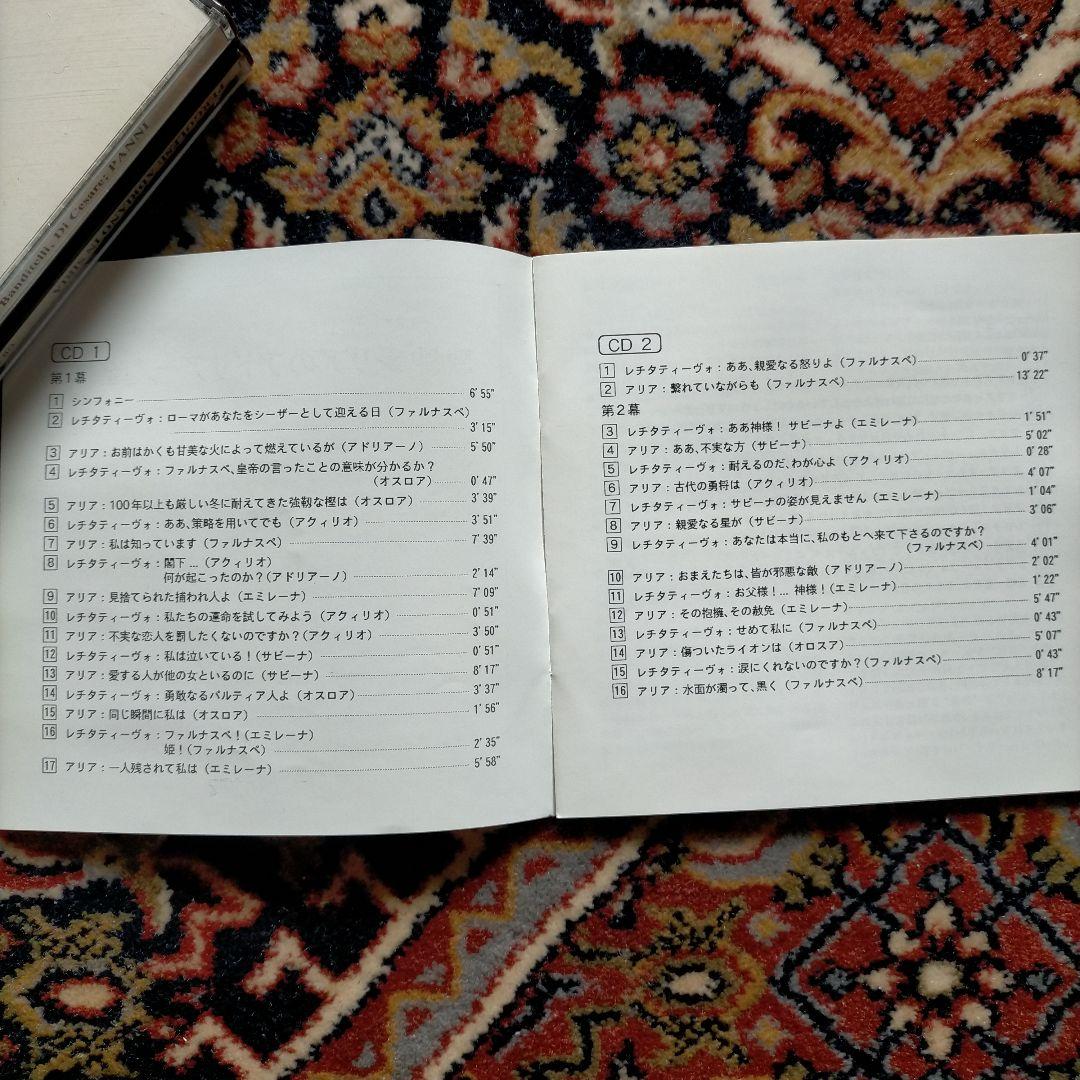 Banditelli, Di Cesare; PANNI
CD 1
第1幕
1 シンフォニー 6′55″
2 レチタティーヴォ：ローマがあなたをシーザーとして迎える日（ファルナスペ）
3′15″
3 アリア：お前はかくも甘美な火によって燃えているが（アドリアーノ） 5′50″
4 レチタティーヴォ：ファルナスペ、皇帝の言ったことの意味が分かるか？
（オスロア） 0′47″
5 アリア：100年以上も厳しい冬に耐えてきた強靱な樫は（オスロア） 3′39″
6 レチタティーヴォ：ああ、策略を用いてでも（アクィリオ） 3′51″
7 アリア：私は知っています（ファルナスペ） 7′39″
8 レチタティーヴォ：閣下 …（アクィリオ）
何が起こったのか？（アドリアーノ） 2′14″
9 アリア：見捨てられた捕われ人よ（エミレーナ） 7′09″
10 レチタティーヴォ：私たちの運命を試してみよう（アクィリオ） 0′51″
11 アリア：不実な恋人を罰したくないのですか？（アクィリオ） 3′50″
12 レチタティーヴォ：私は泣いている！（サビーナ） 0′51″
13 アリア：愛する人が他の女といるのに（サビーナ） 8′17″
14 レチタティーヴォ：勇敢なるパルティア人よ（オスロア） 3′37″
15 アリア：同じ瞬間に私は（オスロア） 1′56″
16 レチタティーヴォ：ファルナスペ！（エミレーナ）
姫！（ファルナスペ） 2′35″
17 アリア：一人残されて私は（エミレーナ） 5′58″
CD 2
1 レチタティーヴォ：ああ、親愛なる怒りよ（ファルナスペ） 0′37″
2 アリア：繋れていながらも（ファルナスペ） 13′22″
第2幕
3 レチタティーヴォ：ああ神様！ サビーナよ（エミレーナ） 1′51″
4 アリア：ああ、不実な方（サビーナ） 5′02″
5 レチタティーヴォ：耐えるのだ、わが心よ（アクィリオ） 0′28″
6 アリア：古代の勇将は（アクィリオ） 4′07″
7 レチタティーヴォ：サビーナの姿が見えません（エミレーナ） 1′04″
8 アリア：親愛なる星が（サビーナ） 3′06″
9 レチタティーヴォ：あなたは本当に、私のもとへ来て下さるのですか？
（ファルナスペ） 4′01″
10 アリア：おまえたちは、皆が邪悪な敵（アドリアーノ） 2′02″
11 レチタティーヴォ：お父様！… 神様！（エミレーナ） 1′22″
12 アリア：その抱擁、その赦免（エミレーナ） 5′47″
13 レチタティーヴォ：せめて私に（ファルナスペ） 0′43″
14 アリア：傷ついたライオンは（オロスア） 5′07″
15 レチタティーヴォ：涙にくれないのですか？（ファルナスペ） 0′43″
16 アリア：水面が濁って、黒く（ファルナスペ） 8′17″